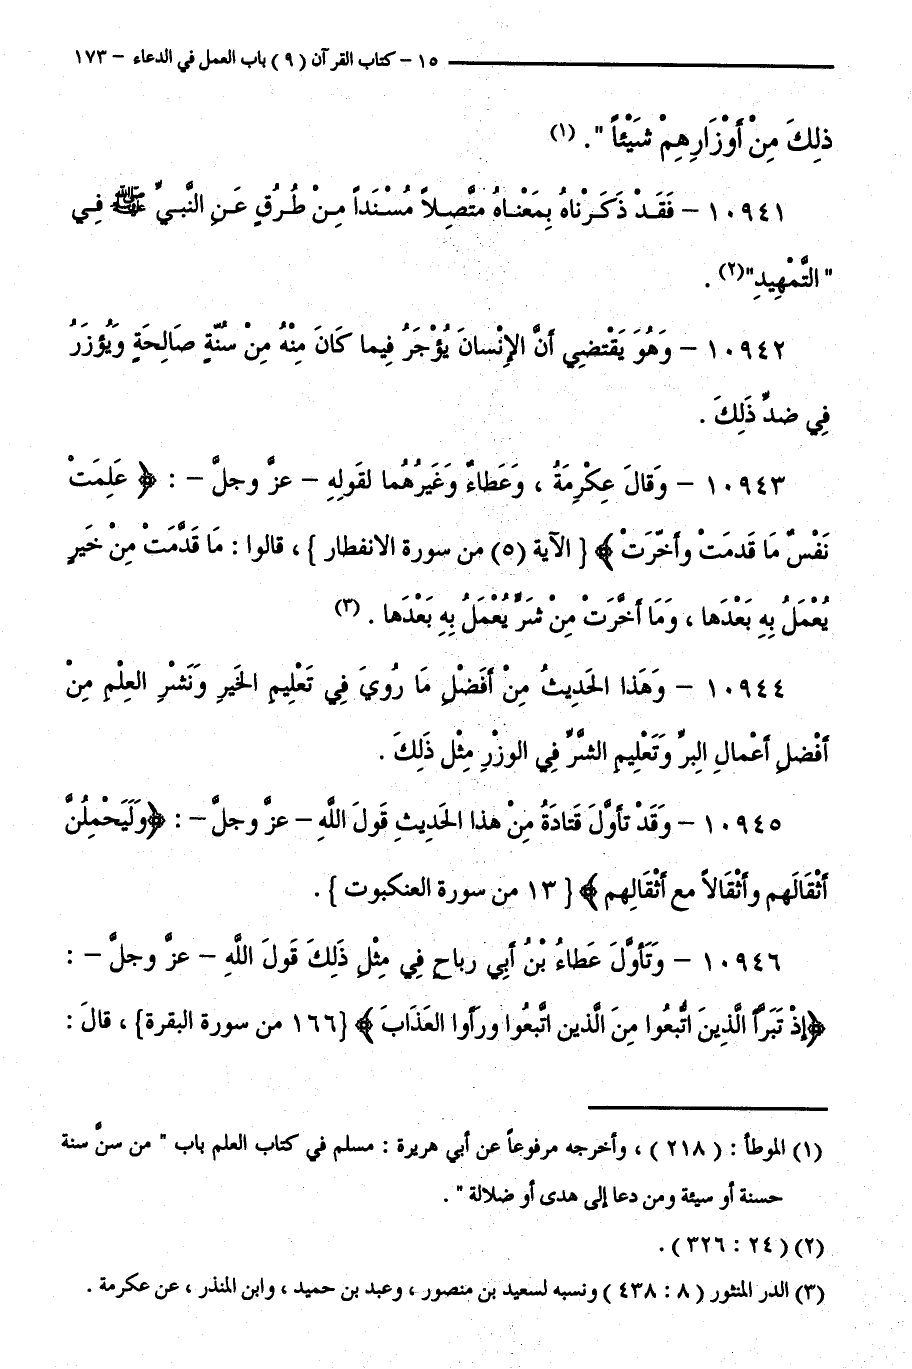 ١٥ – كتاب القرآن ( ٩ ) باب العمل في الدعاء – ١٧٣
ذلِكَ مِنْ أَوْزَارِهِمْ شَيْئاً " . (١)
١٠٩٤١ – فَقَـدْ ذَكَـرْناهُ بِمَعْنـاهُ مُتَّصِـلاً مُسْـنَداً مِـنْ طُـرُقٍ عَـنِ النَّبـيِّ ﷺ فِـي
" التَّمْهِيدِ"(٢) .
١٠٩٤٢ – وَهُوَ يَقْتضِي أَنَّ الإِنْسانَ يُؤْجَرُ فِيما كَانَ مِنْهُ مِنْ سُنّةٍ صَالِحَةٍ وَيُؤزَرُ
فِي ضدِّ ذَلِكَ .
١٠٩٤٣ – وَقالَ عِكْرِمَةُ ، وَعَطاءٌ وَغَيرُهُما لقَولِهِ – عزَّ وجلَّ – : ﴿ عَلِمَتْ
نَفْسٌ مَا قَدمَتْ وأَخّرَتْ ﴾ { الآية (٥) من سورة الانفطار } ، قالوا : مَا قَدَّمَتْ مِنْ خَيرٍ
يُعْمَلُ بِهِ بَعْدَها ، وَمَا أَخَّرَتْ مِنْ شَرٍّ يُعْمَلُ بِهِ بَعْدَها . (٣)
١٠٩٤٤ – وَهَذا الحَدِيثُ مِنْ أَفَضْلِ مَا رُويَ فِي تَعْلِيمِ الخَيرِ وَنَشْرِ العِلْمِ مِنْ
أَفْضلِ أَعْمالِ البِرِّ وَتَعْلِيمِ الشَّرِّ فِي الوزْرِ مِثْل ذَلِكَ .
١٠٩٤٥ – وَقَدْ تأوَّلَ قَتادَةُ مِنْ هذا الحَديثِ قَولَ اللَّهِ – عزَّ وجلَّ– : ﴿وَلَيَحْمِلُنَّ
أَثْقَالَهم وأَثْقَالاً مع أَثْقَالِهم ﴾ { ١٣ من سورة العنكبوت } .
١٠٩٤٦ – وَتَأَوَّلَ عَطاءُ بْنُ أَبِي رباحٍ فِي مِثْلِ ذَلِكَ قَولَ اللَّهِ – عزَّ وجلَّ – :
﴿إِذْ تَبَرَّأَ الَّذِينَ اتُّبعُوا مِنَ الَّذين اتَّبعُوا ورَأَوا العَذَابَ ﴾ {١٦٦ من سورة البقرة} ، قالَ :
(١) الموطأ : ( ٢١٨ ) ، وأخرجه مرفوعاً عن أبي هريرة : مسلم في كتاب العلم باب " من سنَّ سنة
حسنة أو سيئة ومن دعا إلى هدى أو ضلالة " .
(٢) ( ٢٤ : ٣٢٦ ) .
(٣) الدر المنثور ( ٨ : ٤٣٨ ) ونسبه لسعيد بن منصور ، وعبد بن حميد ، وابن المنذر ، عن عكرمة .